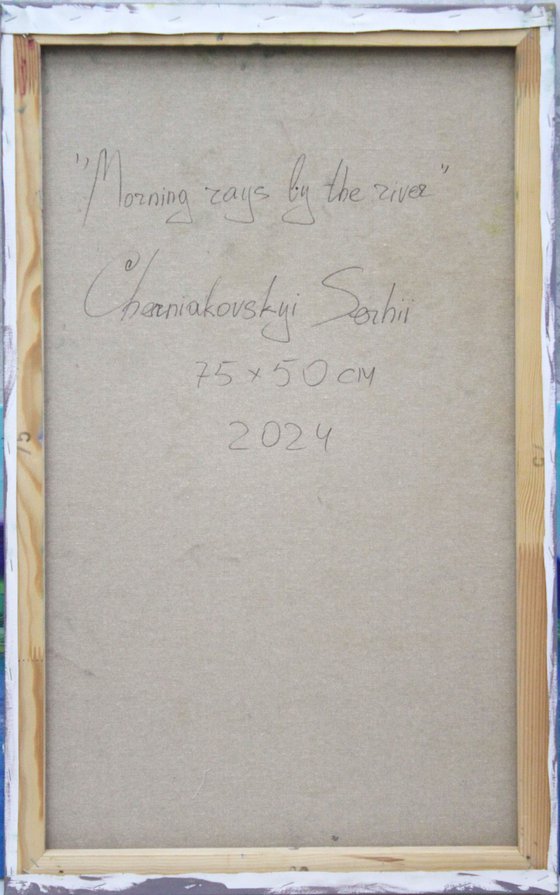 "Morning rays by the river"
Cherniakovskyi Serhii
75 x 50 см
2024
75